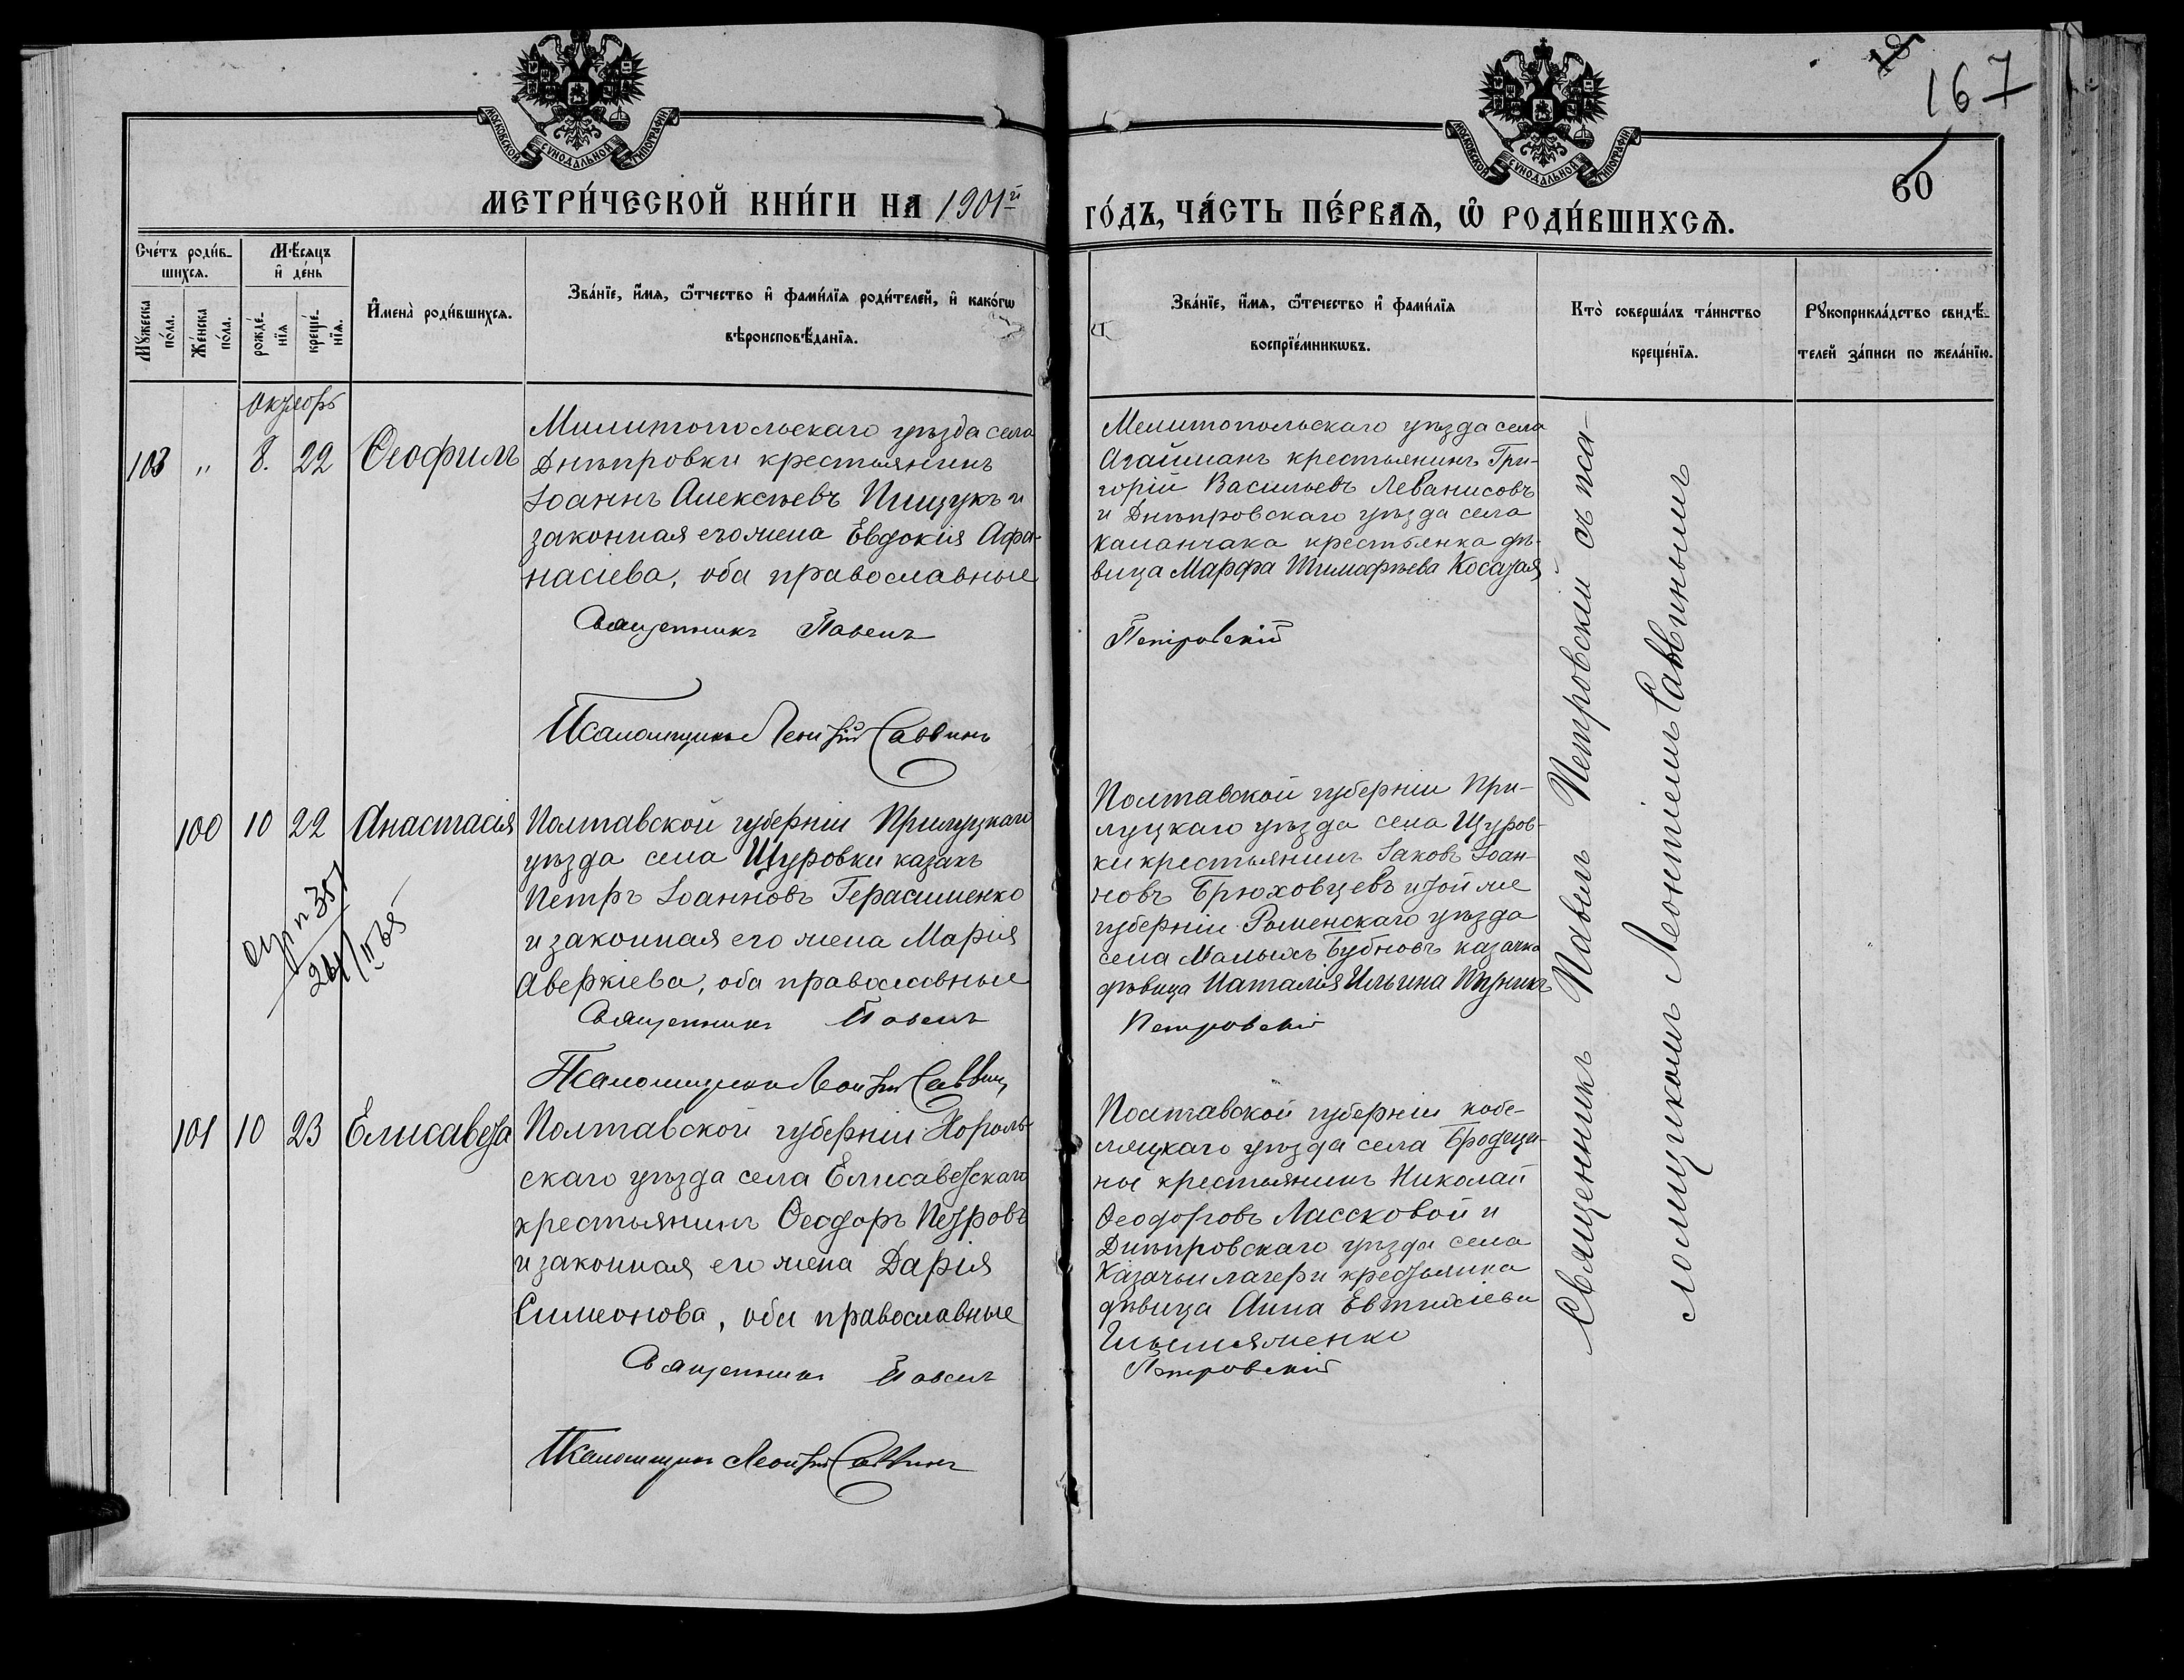 МОСКОВСКОЙ СѴНОДАЛЬНОЙ ТИПОГРАФІИ
МОСКОВСКОЙ СѴНОДАЛЬНОЙ ТИПОГРАФІИ
167
60
МЕТРИ́ЧЕСКОЙ КНИ́ГИ НА 1901й
ГО́ДЪ, ЧА́СТЬ ПЕ́РВАѦ, Ѡ҆ РОДИ́ВШИХСѦ.
Сче́тъ роди́в-
шихсѧ.
Мꙋжеска
по́ла.
Же́нска
по́ла.
Мѣ́сѧцъ
и҆ де́нь
рожде́-
нїѧ
креще́-
нїѧ.
И҆мена̀ роди́вшихсѧ.
Зва́нїе, и҆́мѧ, ѻ҆́тчество и҆ фами́лїѧ роди́телей, и҆ како́гѡ
вѣроисповѣ́данїѧ.
Зва́нїе, и҆́мѧ, ѻ҆́течество и҆ фами́лїѧ
воспрїе́мникѡвъ.
Кто̀ соверша́лъ та́инство
креще́нїѧ.
Рꙋкоприкла́дство свидѣ́-
телей за́писи по жела́нїю.
Октябрь
103 " 8. 22 Ѳеофилъ
Милитопольскаго уѣзда села
Днѣпровки крестьянинъ
Іоаннъ Алексѣевъ Пищукъ и
законная его жена Евдокія Афа-
насіева, оба православные
Священникъ Павелъ
Псаломщикъ Леонтій Саввинъ
Мелитопольскаго уѣзда села
Агайманъ крестьянинъ Гри-
горій Васильевъ Леванисовъ
и Днѣпровскаго уѣзда села
Каланчака крестьянка дѣ-
вица Марфа Тимофѣева Косатая
Петровскій
100 10 22 Анастасія
Полтавской губерніи Прилуцкаго
уѣзда села Щуровки казакъ
Петръ Іоанновъ Герасименко
и законная его жена Марія
Аверкіева, оба православные
Священникъ Павелъ
Псаломщикъ Леонтій Саввинъ
Полтавской губерніи При-
луцкаго уѣзда села Щуров-
ки крестьянинъ Іаковъ Іоан-
новъ Брюховцевъ и той же
губерніи Роменскаго уѣзда
села Малыхъ Бубновъ казачка
дѣвица Наталія Ильина
Петровскій
101 10 23 Елисавета
Полтавской губерніи Хороль-
скаго уѣзда села Елисаветскаго
крестьянинъ Ѳеодоръ Петровъ
и законная его жена Дарія
Симеонова, оба православные
Священникъ Павелъ
Псаломщикъ Леонтій Саввинъ
Полтавской губерніи кобе-
ляцкаго уѣзда села
крестьянинъ Николай
Ѳеодоровъ Лассковой и
Днѣпровскаго уѣзда села
Казачьи лагери крестьянка
дѣвица Анна
Петровскій
Священникъ Павелъ Петровскій съ пса-
ломщикомъ Леонтіемъ Саввинымъ